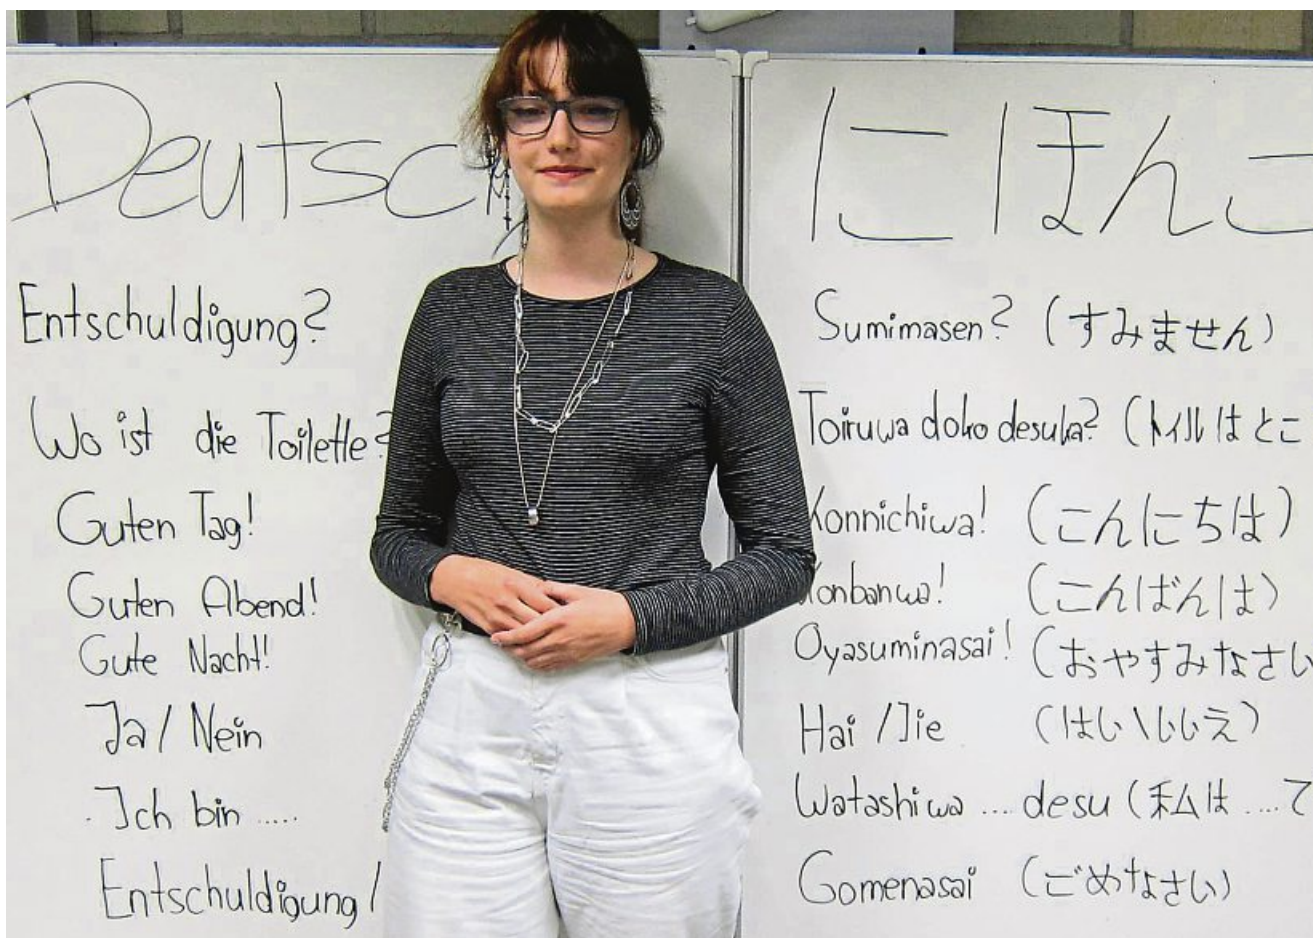 Deutsc
Entschuldigung?
Wo ist die Toilette?
Guten Tag!
Guten Abend!
Gute Nacht!
Ja / Nein
Ich bin .....
Entschuldigung /
にほんご
Sumimasen? (すみません)
Toiruwa doko desuka? (トイルはとこ
Konnichiwa! (こんにちは)
Konbanwa! (こんばんは)
Oyasuminasai! (おやすみなさい
Hai / Iie (はい \ いいえ)
Watashiwa .... desu (私は ....で
Gomenasai (ごめなさい)